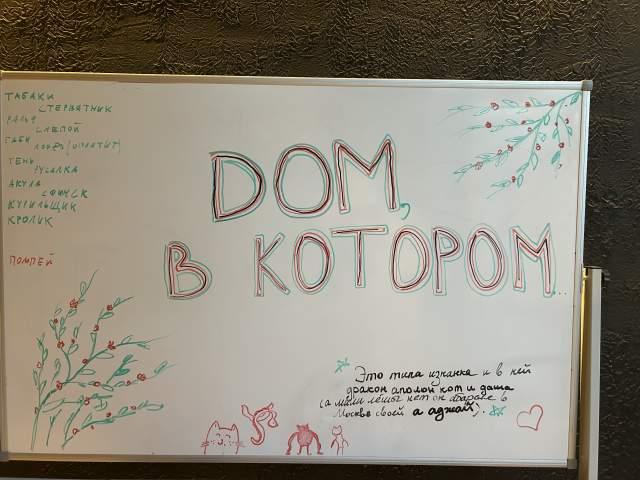 ТАБАКИ
СТЕРВЯТНИК
РАЛЬФ
СЛЕПОЙ
ГАБИ
ЛОРД (ОПЛАТИТ)
ТЕНЬ
РУСАЛКА
АКУЛА
СФИНКС
КУРИЛЬЩИК
КРОЛИК
ПОМПЕЙ
ДОМ,
В КОТОРОМ...
Это типа изнанка и в ней
дракон аполой кот и даша
(а мамы лёшы нет он
Москве своей а аджай).